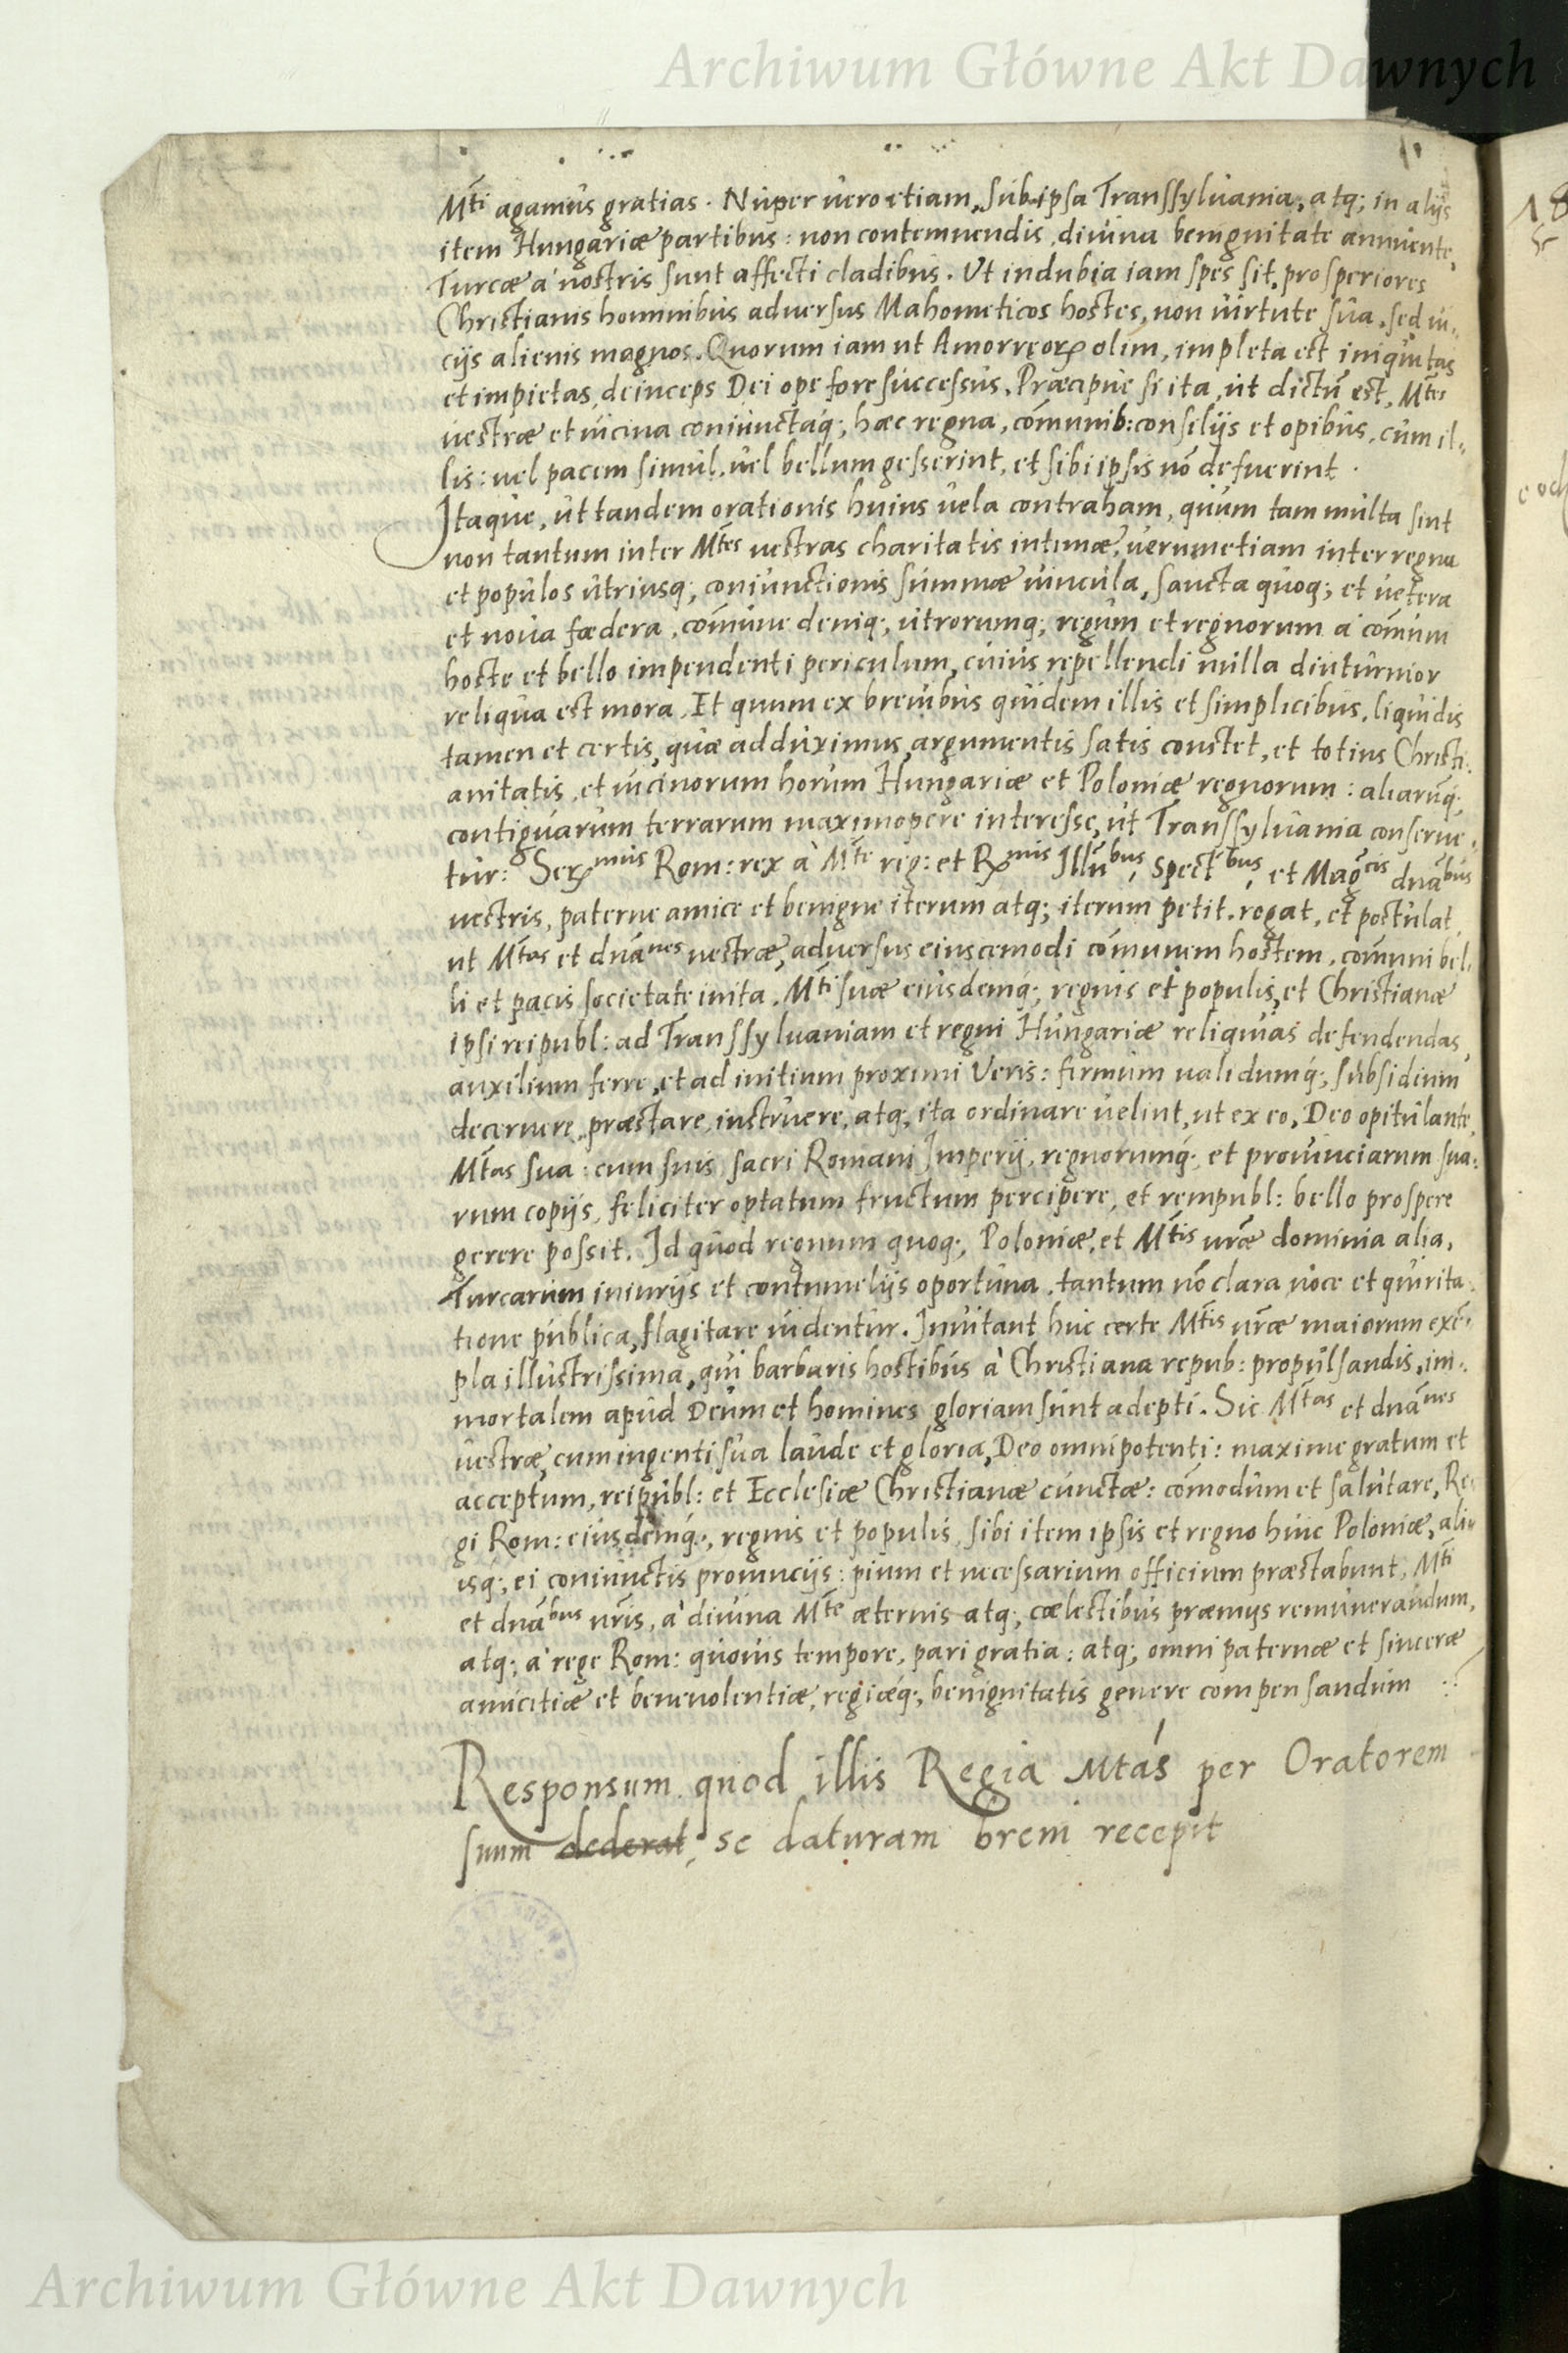 Archiwum Główne Akt Dawnych
Mti agamus gratias. Nuper vero etiam, sub ipsa Transsylvania, atq; in alijs
item Hungariæ partibus: non contemnendis, divina benignitate annuente,
Turcæ à nostris sunt affecti cladibus. Ut indubia iam spes sit, prosperiores
Christianis hominibus adversus Mahometicos hostes, non virtute sua, sed vi-
cijs alienis magnos. Quorum iam ut Amorręorꝝ olim, impleta est iniquitas
et impietas, deinceps Dei ope fore successus. Præcipue si ita, ut dictū est, Mtes
vestræ et vicina coniunctaq; hæc regna, com̄unib: consilijs et opibus, cum il-
lis: vel pacem simul, vel bellum gesserint, et sibi ipsis nō defuerint.
Itaque, ut tandem orationis huius vela contraham, quum tam multa sint
non tantum inter Mtes vestras charitatis intimæ, verumetiam inter regna
et populos utriusq; coniunctionis summæ vincula, sancta quoq; et vetera
et nova fœdera, com̄une deniq; utrorumq; regum et regnorum à com̄uni
hoste et bello impendenti periculum, cuius repellendi nulla diuturnior
reliqua est mora. Et quum ex brevibus quidem illis et simplicibus, liquidis
tamen et certis, quæ adduximus, argumentis satis constet, et totius Christi-
anitatis, et vicinorum horum Hungariæ et Poloniæ regnorum: aliarumq;
contiguarum terrarum maximopere interesse, ut Transsylvania conserve-
tur: Serꝝmus Rom: rex à Mte reg: et Rꝝmis Illūbus, Spectbus, et Magcis dnābus
vestris, paterne amice et benigne iterum atq; iterum petit, rogat, et postulat,
ut Mtas et dnānes vestræ, adversus eiuscemodi com̄unem hostem, com̄uni bel-
li et pacis societate inita, Mti suæ eiusdemq; regnis et populis, et Christianæ
ipsi reipubl: ad Transsylvaniam et regni Hungariæ reliquias defendendas,
auxilium ferre, et ad initium proximi Veris: firmum validumq; subsidium
decernere, præstare, instruere, atq; ita ordinare velint, ut ex eo, Deo opitulante,
Mtas sua: cum suis, sacri Romani Imperij, regnorumq; et provinciarum sua-
rum copijs, feliciter optatum fructum percipere, et rempubl: bello prospere
gerere possit. Id quod regnum quoq; Poloniæ, et Mtis vrāe dominia alia,
Turcarum iniurijs et contumelijs oportuna, tantum nō clara voce et quirita-
tione publica, flagitare videntur. Invitant huc certe Mtis vrāe maiorum exē-
pla illustrissima, qui barbaris hostibus à Christiana repub: propulsandis, im-
mortalem apud Deum et homines gloriam sunt adepti. Sic Mtas et dnānes
vestræ, cum ingenti sua laude et gloria, Deo omnipotenti: maxime gratum et
acceptum, reipubl: et Ecclesiæ Christianæ cunctæ: com̄odum et salutare, Re-
gi Rom: eiusdemq; regnis et populis, sibi item ipsis et regno huic Poloniæ, ali-
isq; ei coniunctis provincijs: pium et necessarium officium præstabunt, Mti
et dnābus vrīs, à divina Mte æternis atq; cælestibus præmijs remunerandum,
atq; à rege Rom: quovis tempore, pari gratia: atq; omni paternæ et sinceræ
amicitiæ et benevolentiæ, regiæq; benignitatis genere compensandum
Responsum quod illis Regia Mtas per Oratorem
suum dederat, se daturam brevi recepit
Archiwum Główne Akt Dawnych